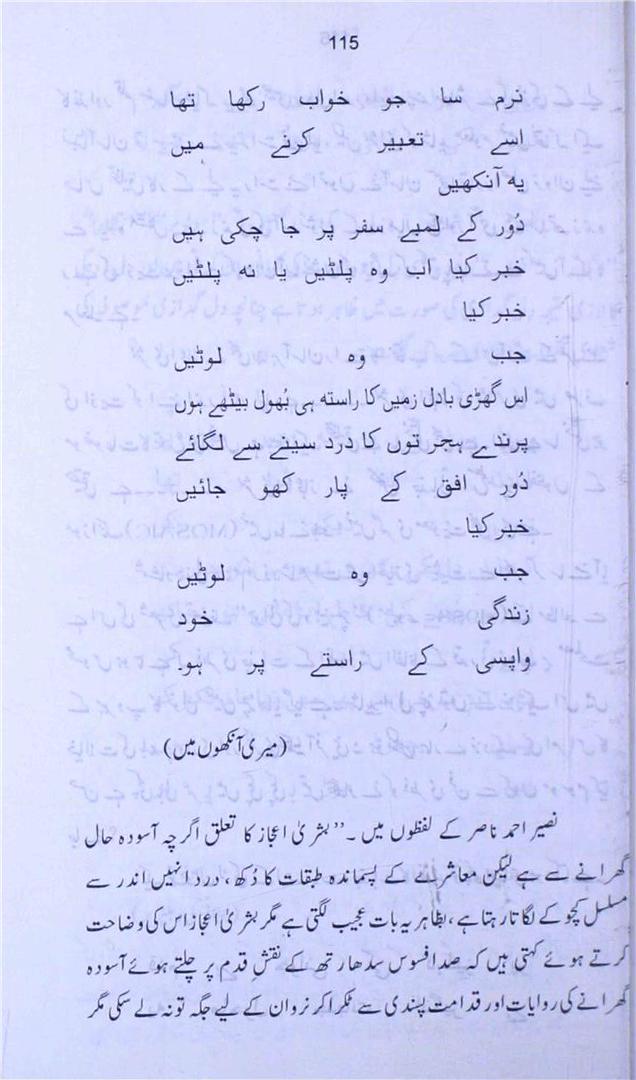 115
نرم سا جو خواب رکھا تھا
اسے تعبیر کرنے میں
یہ آنکھیں
دُور کے لمبے سفر پر جا چکی ہیں
خبر کیا اب وہ پلٹیں یا نہ پلٹیں
خبر کیا
جب وہ لوٹیں
اس گھڑی بادل زمیں کا راستہ ہی بُھول بیٹھے ہوں
پرندے ہجرتوں کا درد سینے سے لگائے
دُور افق کے پار کھو جائیں
خبر کیا
جب وہ لوٹیں
زندگی خود
واپسی کے راستے پر ہو۔
(میری آنکھوں میں)
نصیر احمد ناصر کے لفظوں میں۔ "بشریٰ اعجاز کا تعلق اگرچہ آسودہ حال
گھرانے سے ہے لیکن معاشرے کے پسماندہ طبقات کا دُکھ، درد انہیں اندر سے
مسلسل کچوکے لگاتا رہتا ہے، بظاہر یہ بات عجیب لگتی ہے مگر بشریٰ اعجاز اس کی وضاحت
کرتے ہوئے کہتی ہیں کہ صد افسوس سدھارتھ کے نقشِ قدم پر چلتے ہوئے آسودہ
گھرانے کی روایات اور قدامت پسندی سے ٹکرا کر نروان کے لیے جگہ تو نہ لے سکی مگر